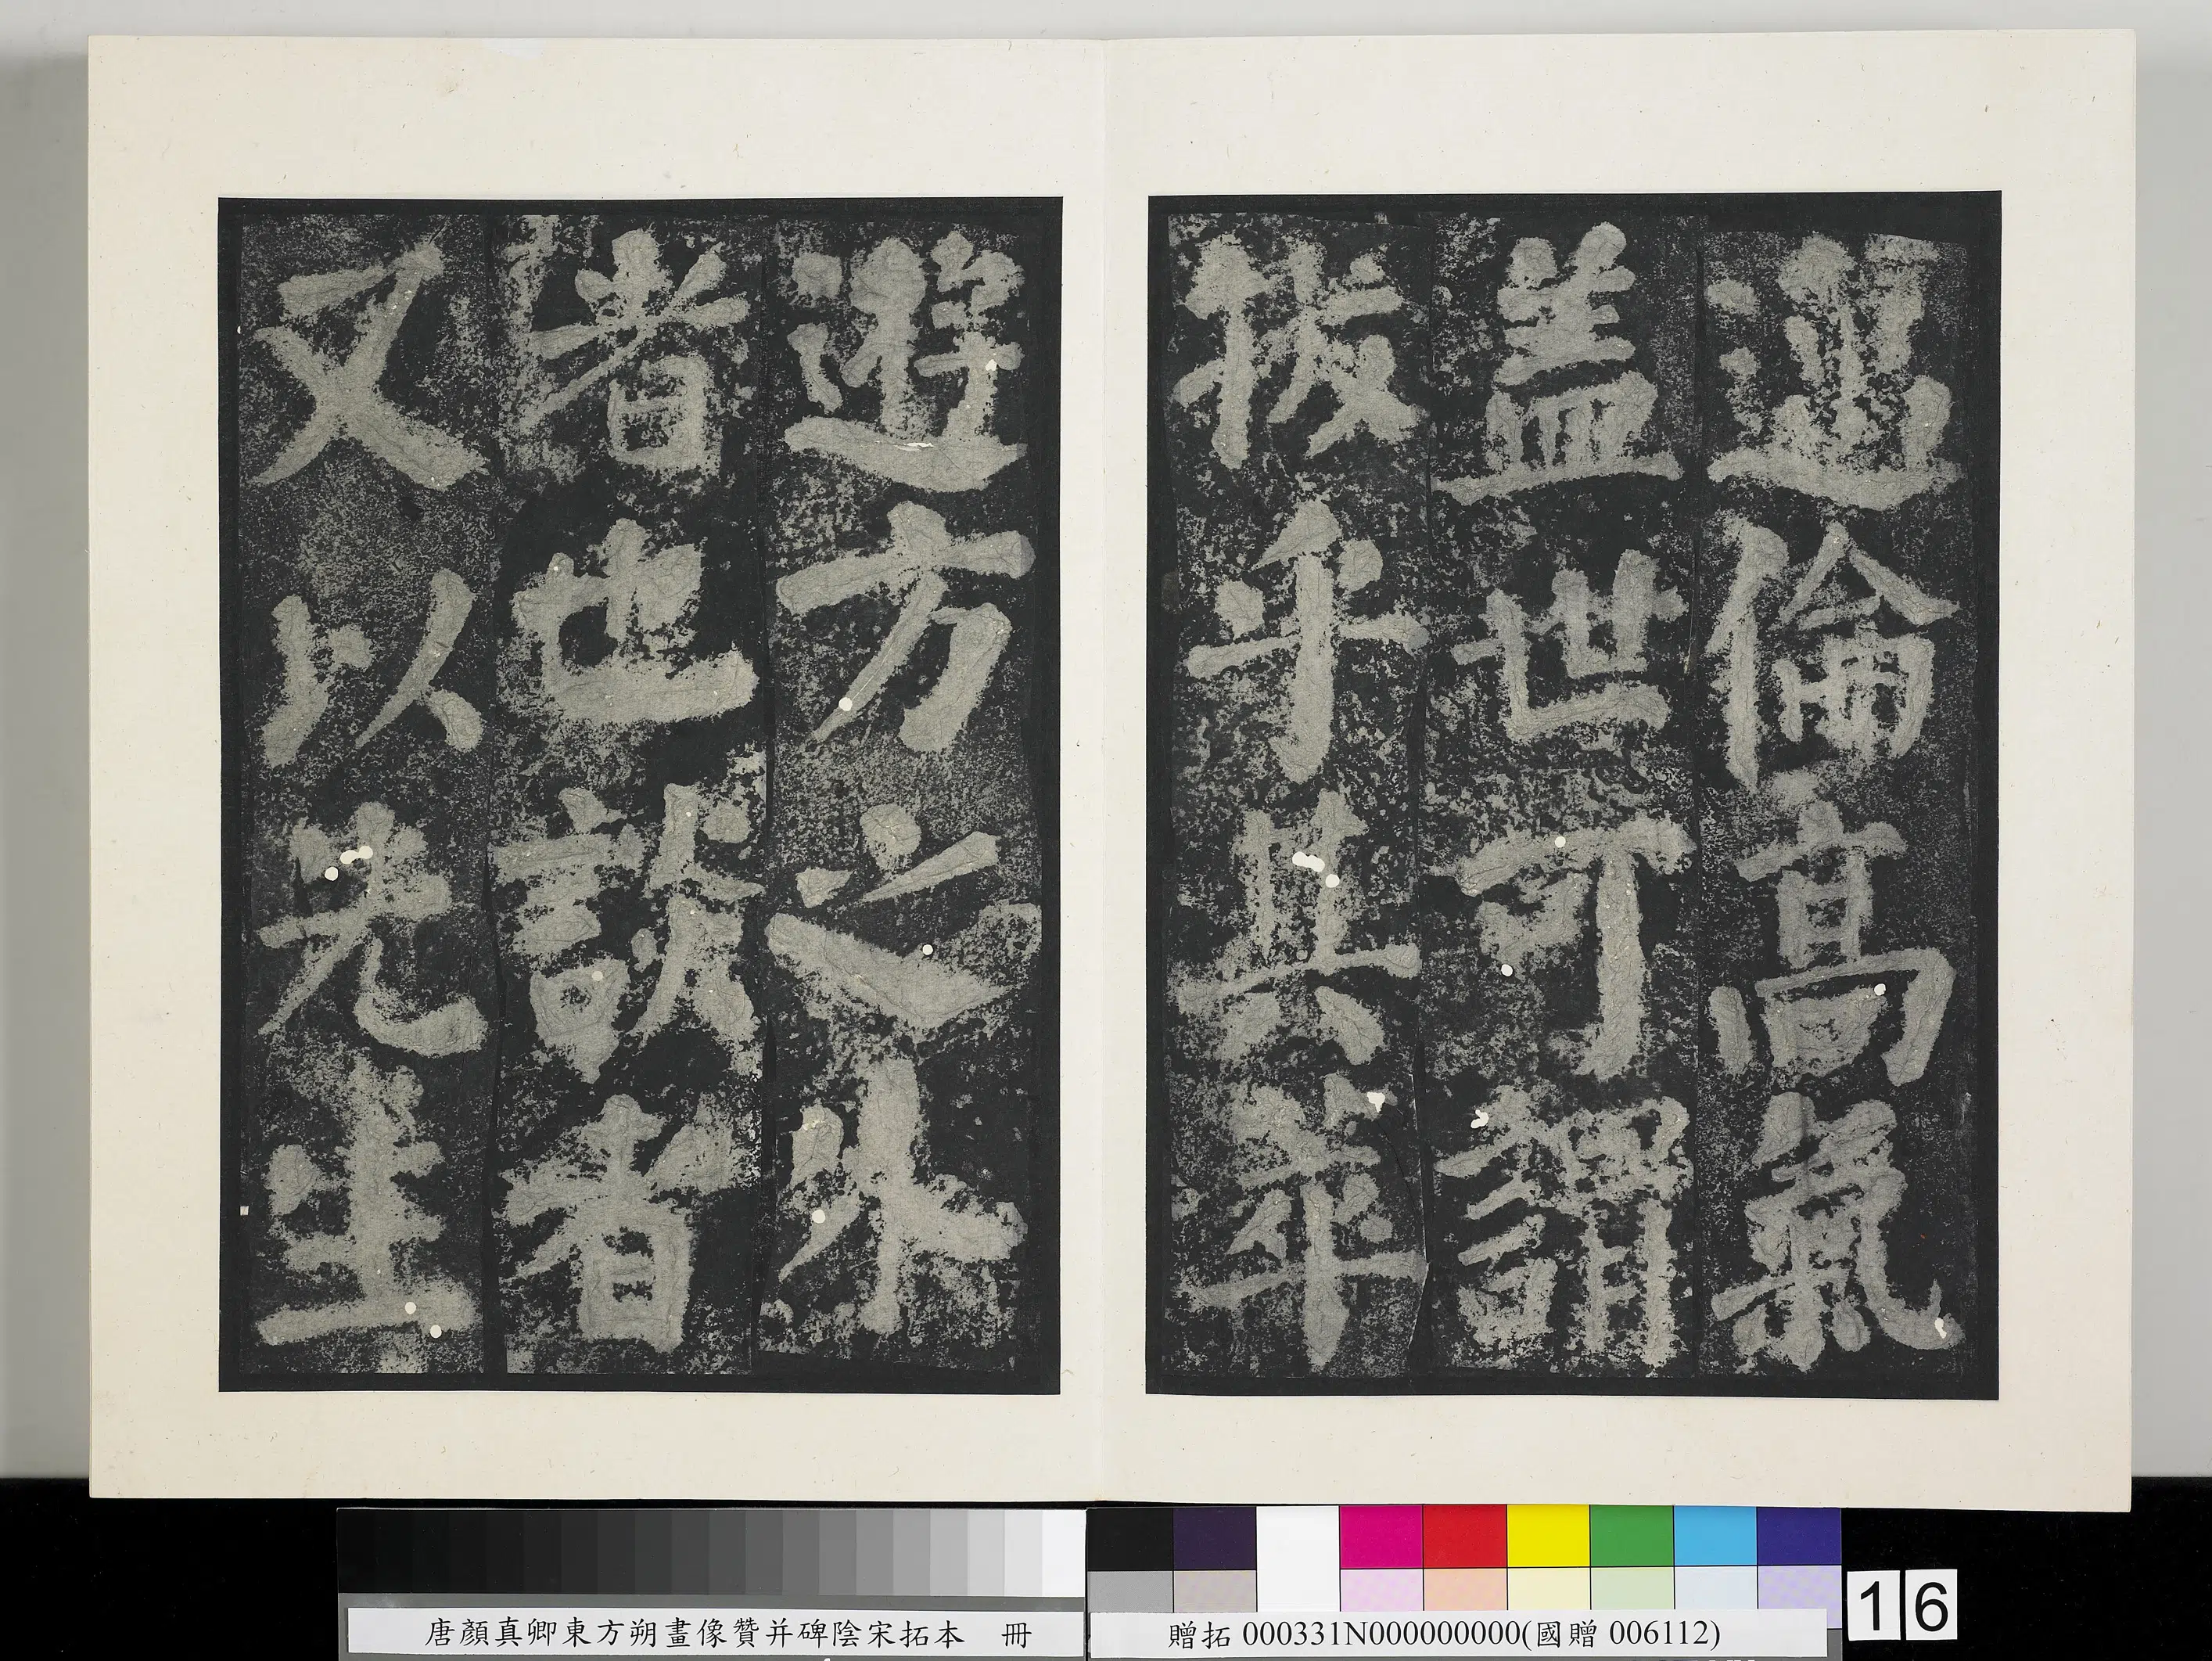 逈倫高氣
盖世可謂
拔乎其萃
遊方之外
者也談者
又以先生
唐顏真卿東方朔畫像贊并碑陰宋拓本 冊
贈拓 000331N000000000(國贈 006112)
16